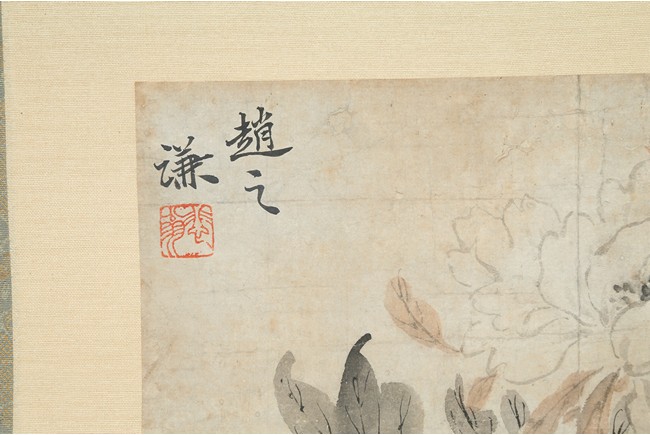 趙之
謙